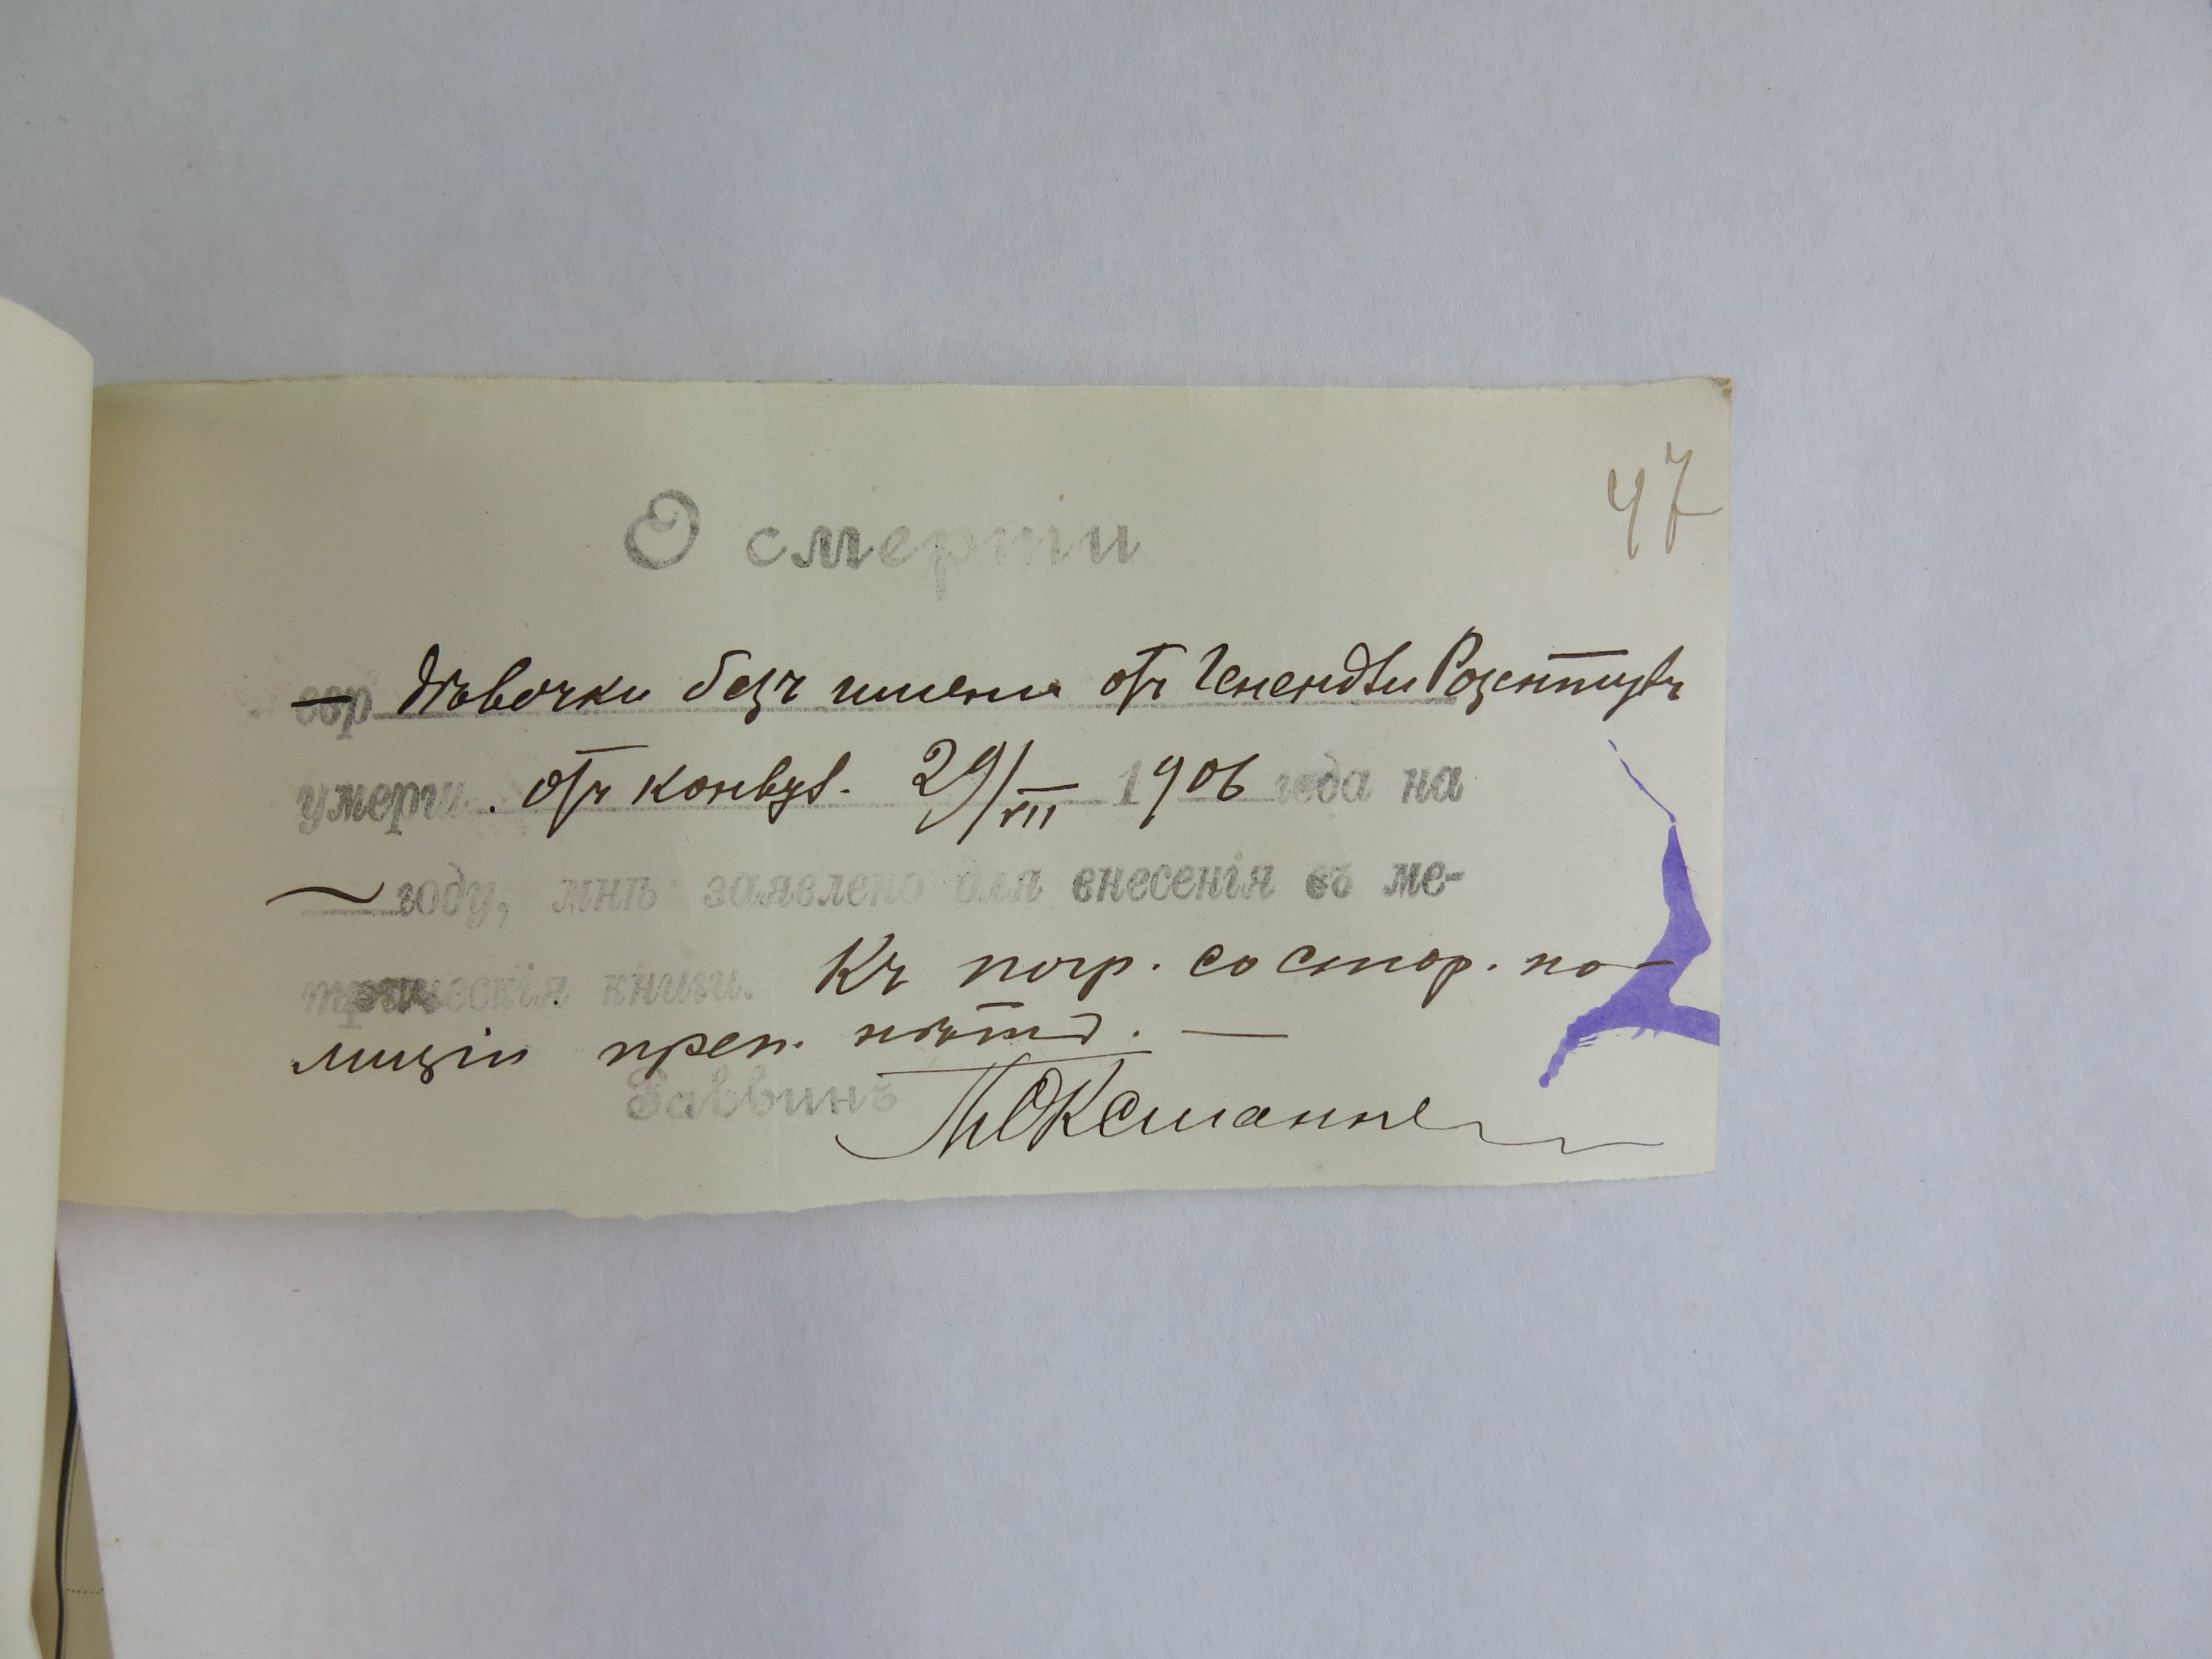 47
О смерти
евр дѣвочки безъ имени отъ Генендѣи Розентуль
умерш. отъ конвул. 29/VII 1906 года на
году, мнѣ заявлено для внесенія въ ме-
трическія книги. Къ погр. со стор. по-
лиціи преп. нѣтъ. —
Раввинъ